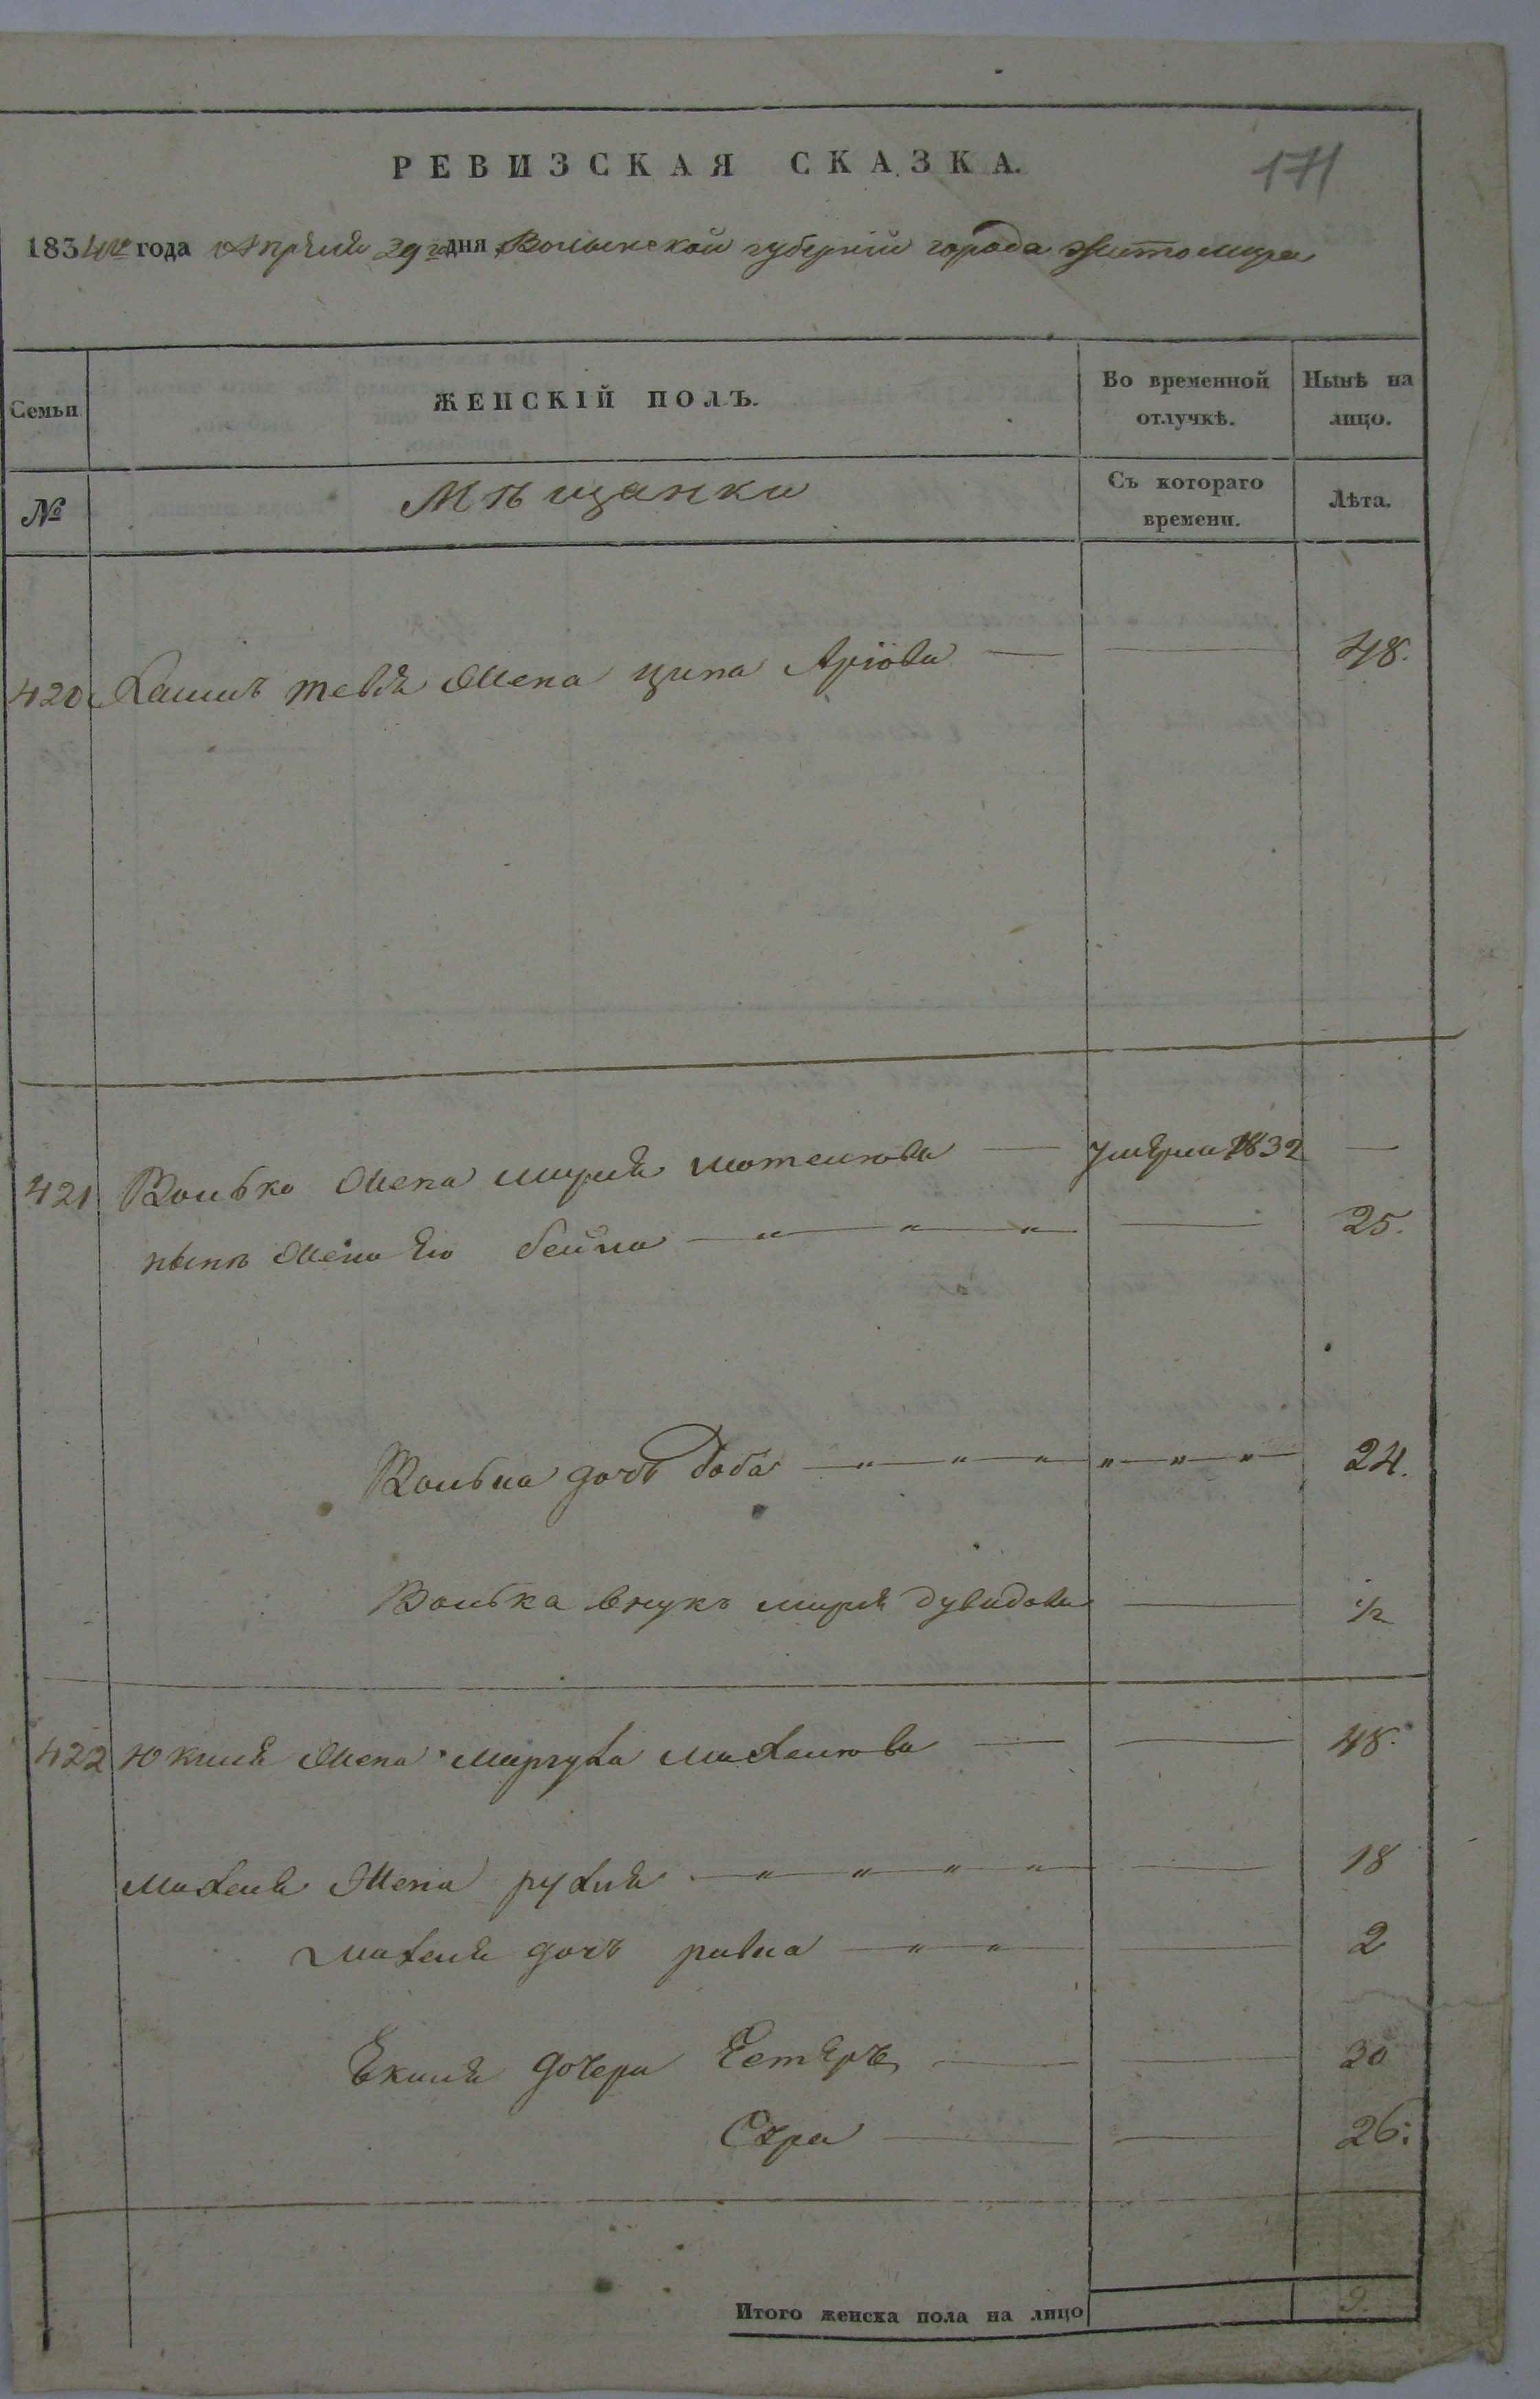 РЕВИЗСКАЯ СКАЗКА.
171
1834го года Апреля 29го дня Волынской губерніи города Житомира
Семьи
ЖЕНСКІЙ ПОЛЪ.
Во временной отлучкѣ.
Нынѣ на лицо.
№
Мѣщанки
Съ котораго времени.
Лѣта.
420 Хаимъ тевля Жена ципа Аріова — — 48.
421 Волько Жена миріля мотелюва — умерла 1832 —
нынѣ Жена Его бейла — — 25.
Волька дочь Доба — 24.
Волька внукъ миріля дувидова — 1/2
422 Юкиля Жена маргуля михелюва — — 48.
михеля Жена рухля — — 18
михеля дочь ривка — — 2
Екиля дочери Естеръ — — 30
Сура — — 26.
Итого женска пола на лицо 9.